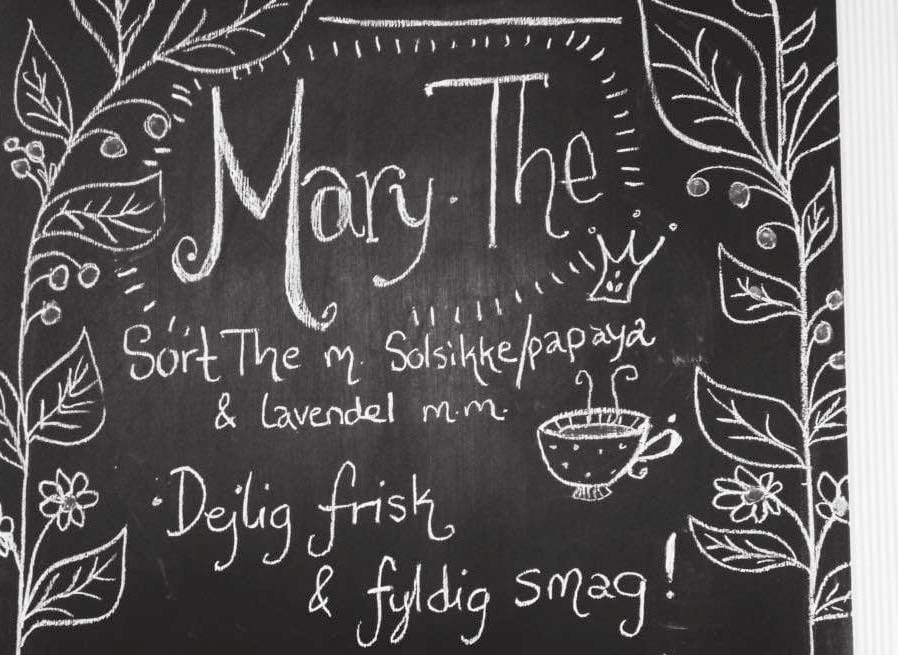 Mary. The
Sort The m. Solsikke/papaya
& Lavendel m.m.
Dejlig frisk
& fyldig smag!